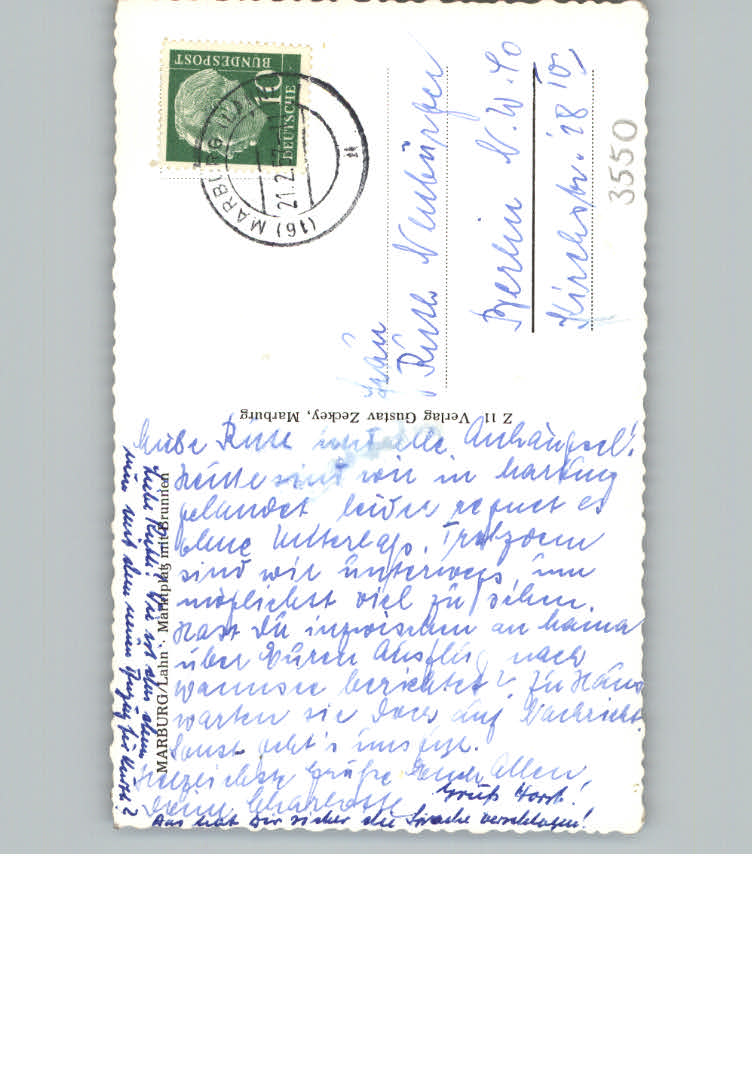 DEUTSCHE
BUNDESPOST
10
(16) MARBURG
21.2.5
Frau
Ruth Neubürger
Berlin N.W. 40
Kirchstr. 28 IV
3550
Z 11 Verlag Gustav Zeckey, Marburg
MARBURG/Lahn · Marktplatz mit Brunnen
Liebe Ruth und alle Anhängsel!
Heute sind wir in Marburg
gelandet leider regnet es
ohne Unterlass. Trotzdem
sind wir unterwegs um
möglichst viel zu sehen.
Hast Du inzwischen an Mama
über Euren Ausflug nach
Wannsee berichtet? Zu Haus
warten sie doch auf Nachricht.
Sonst geht's uns gut.
Herzlichste Grüße Euch Allen
Deine Charlotte
Gruß Horst!
Liebe Ruth! Wie ist das denn
nun mit dem neuen Anzug für
Das hat Dir sicher die Sprache verschlagen!